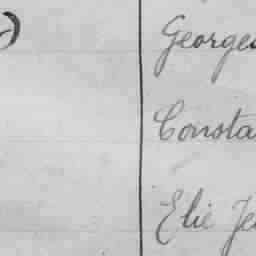 )
Georges
Consta
Elie Je